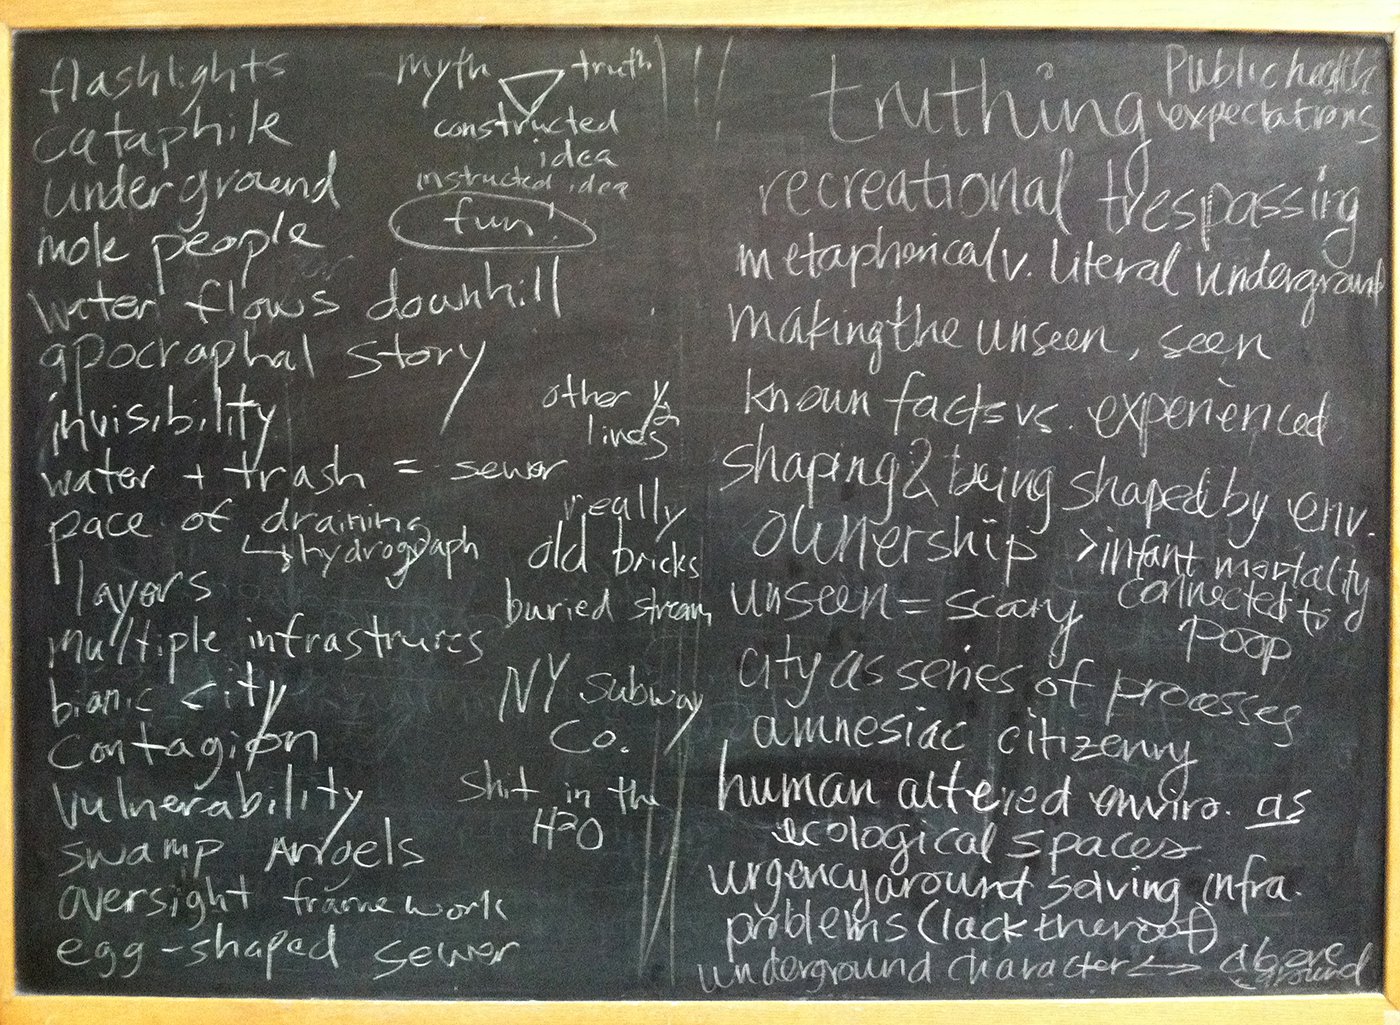 flashlights
cataphile
underground
mole people
water flows downhill
apocraphal story
invisibility
water + trash = sewer
pace of draining
↳ hydrograph
layers
multiple infrastrures
bionic city
contagion
vulnerability
swamp Angels
oversight framework
egg-shaped sewer
myth truth
constructed
idea
instructed idea
fun!
other 1/2
lines
really
old bricks
buried stream
NY Subway
Co.
shit in the
H2O
truthing
Public health
expectations
recreational trespassing
metaphorical v. literal underground
making the unseen, seen
known facts vs. experienced
shaping & being shaped by env.
ownership
> infant mortality
connected to
poop
unseen = scary
city as series of processes
amnesiac citizenry
human altered enviro. as
ecological spaces
urgency around solving infra.
problems (lack thereof)
underground character <-> above
ground